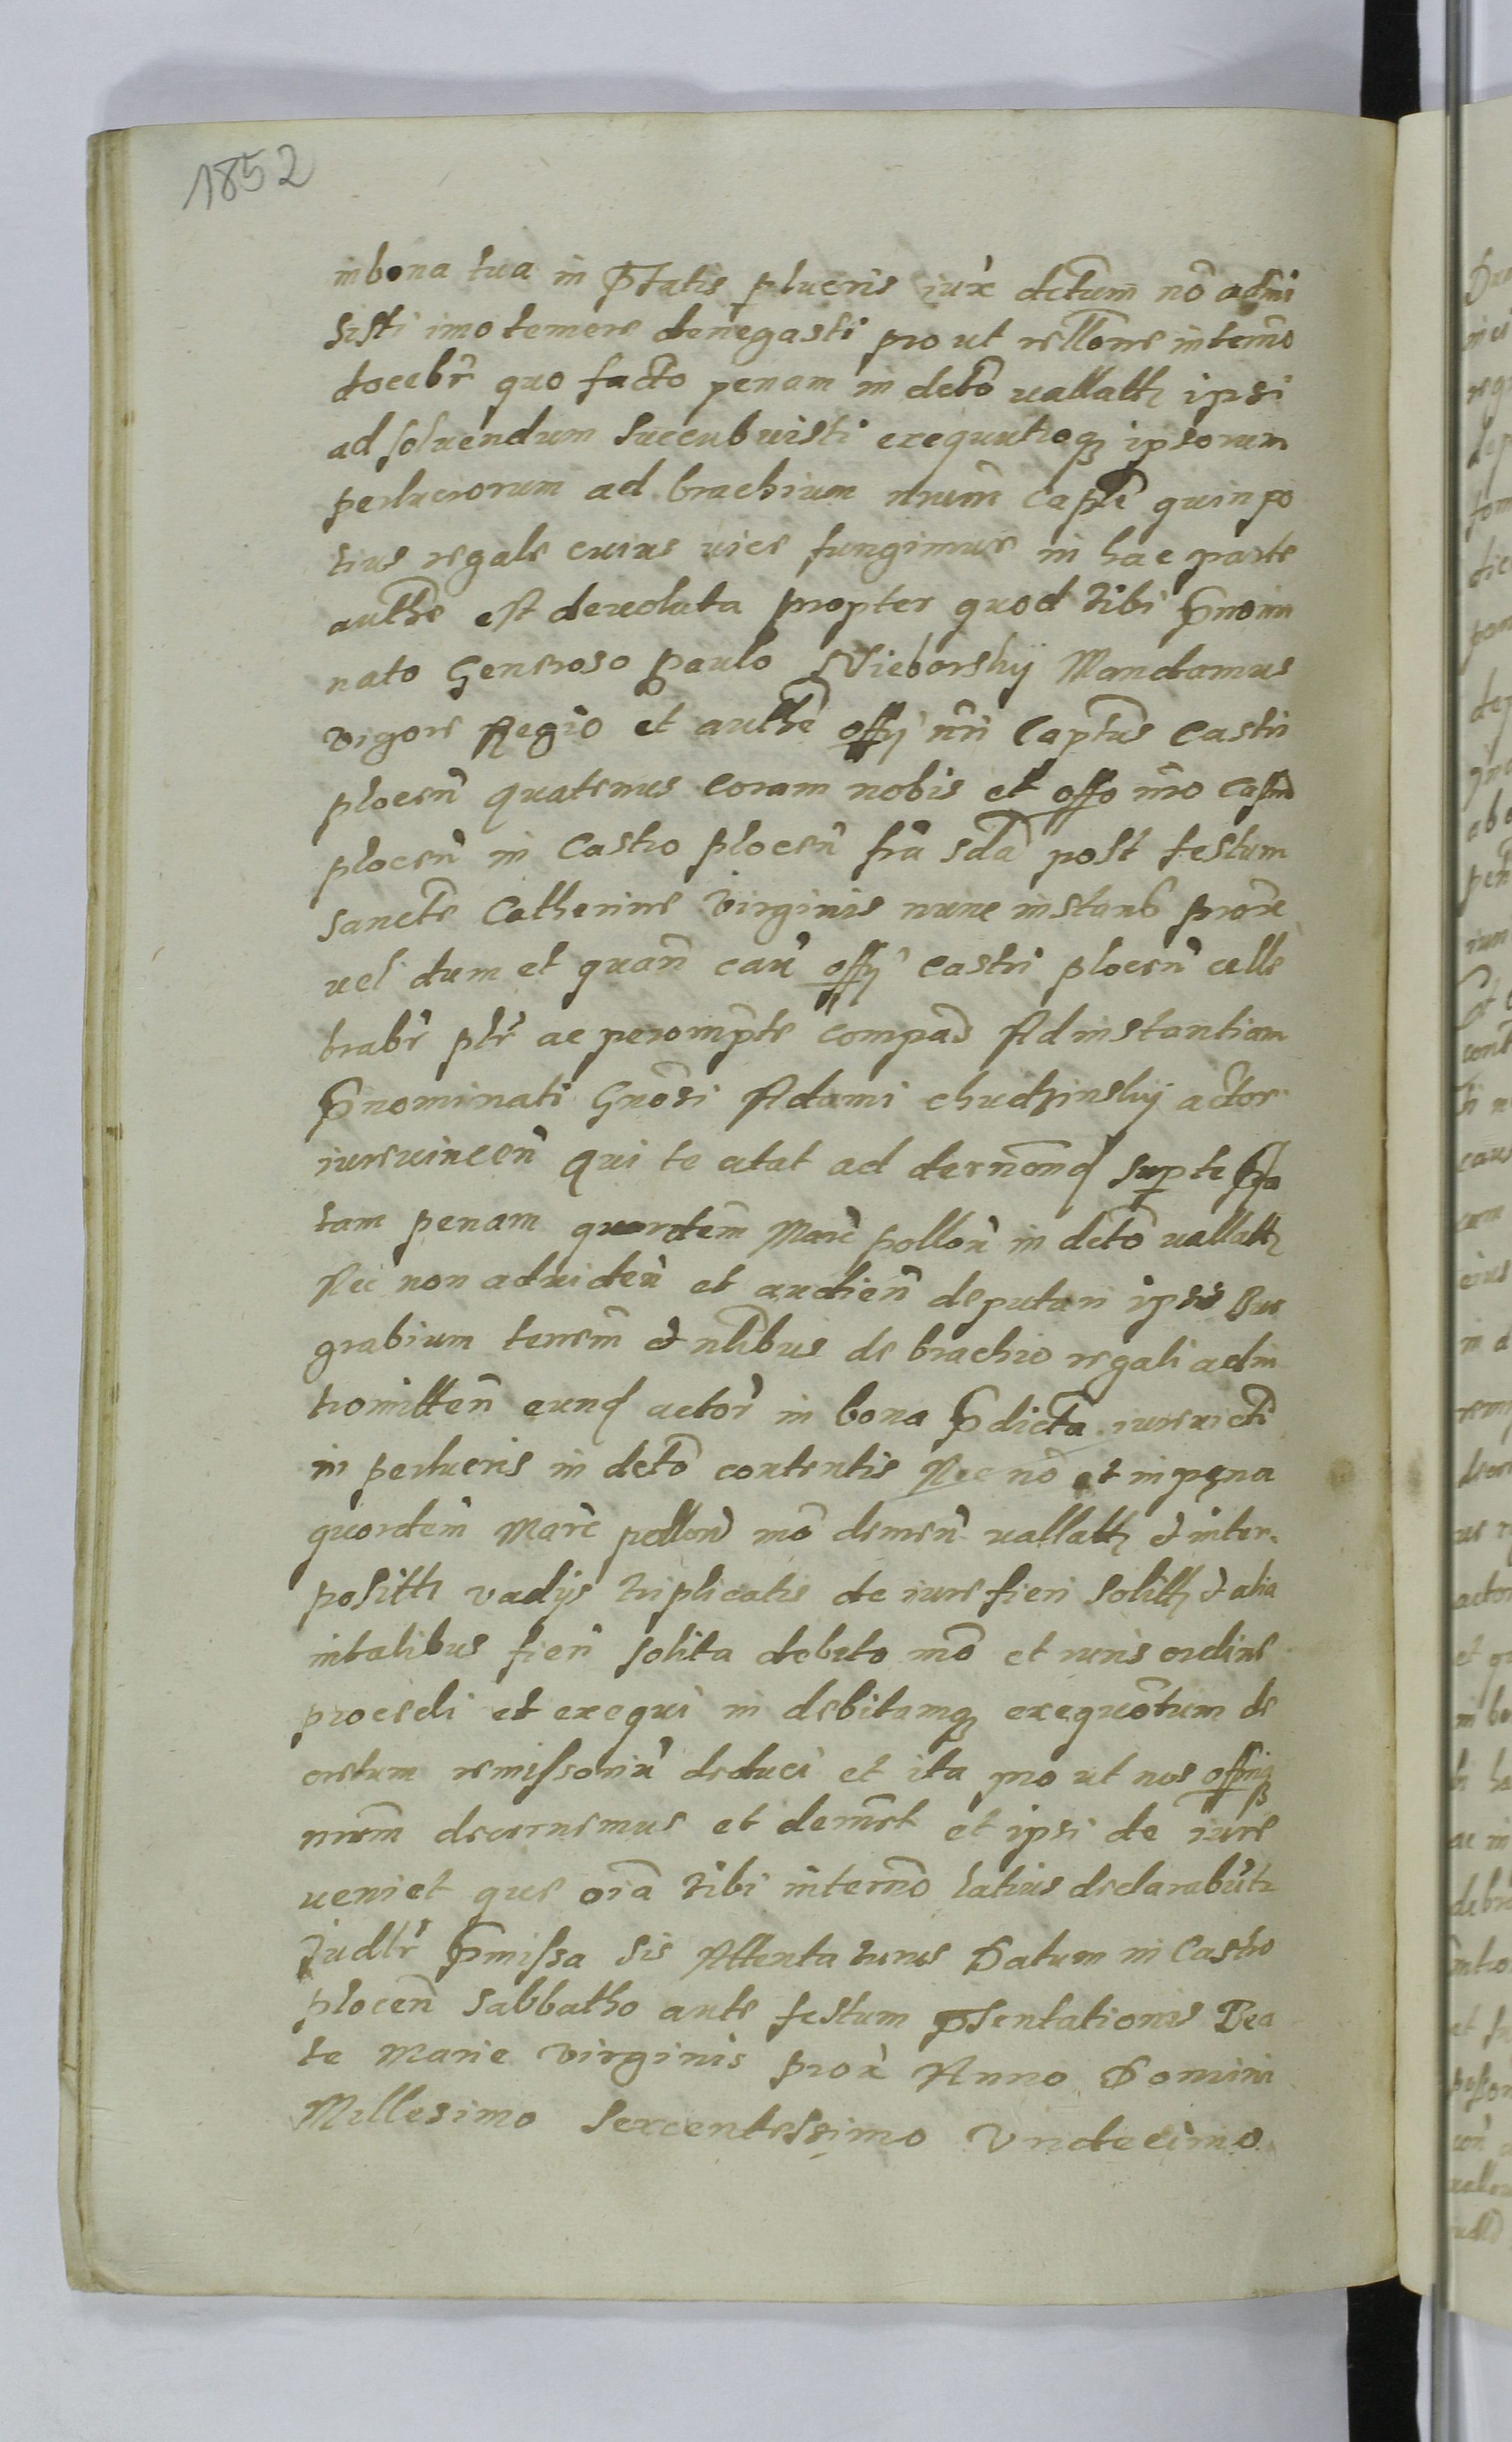 1852
in bona tua in p̃fatis plucris iux̃ dctum nõ admi
sisti imo temere denegasti pro ut rellõne in termõ
docebr̃ quo facto penam in dcto uallatt ipsi
ad soluendum succubuisti exequutioq₃ ipsorum
perlucrorum ad brachium nrum Captle quin po
tius regale cuius vice fungimur in hac parte
authe est deuoluta propter quod tibi p̃nomi
nato Generoso Paulo Wieborskÿ Mandamus
vigore Regio et authe offÿ nri Captus Castri
plocen̄ quatenus coram nobis et offo nro Castri
plocen̄ in Castro plocen̄ fra sda post festum
sancte Catherine Virginis nunc instan prox̃
uel dum et quan̄ cau offÿ Castri plocen̄ celle
brabr̃ plr̃ ac perempte compas Ad instantiam
p̃nominati Gnosi Adami chudzinskÿ actor
iureuincen̄ qui te citat ad
tam penam quordem Marc pollon̄ in dcto uallatt
Nec non aduiden̄ et audien̄ deputari ipsi Bur
grabium terrem & nlibus de brachio regali adin
tromitten̄ eund actor̃ in bona p̃dicta iureuicti
in perlucris in dcto contentis Nec nõ et in pena
quordem Marc pollon̄ mõ uallatt & inter.
positt vadÿs triplicatis de iure fieri solitt & alia
in talibus fieri solita debito mõ et iuris ordine
procedi et exequi in debitamq₃ exequõtum de
cretum remissoriu deduci et ita pro ut nos offmq₃
nrum decernemus et dernet et ipsi de iure
ueniet que oia tibi in termõ latius declarabutr
Judlr̃ p̃missa sis Attentaturus Datum in Castro
plocen̄ sabbatho ante festum p̃sentationis Bea
te Marie Virginis prox̃ Anno Domini
Millesimo Sexcentessimo Vndecimo